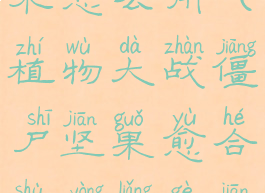 zhí wù dà zhàn jiāng
植物大战僵
shī jiān guǒ yù hé
尸坚果愈合
shù yòng liǎng gè jiān